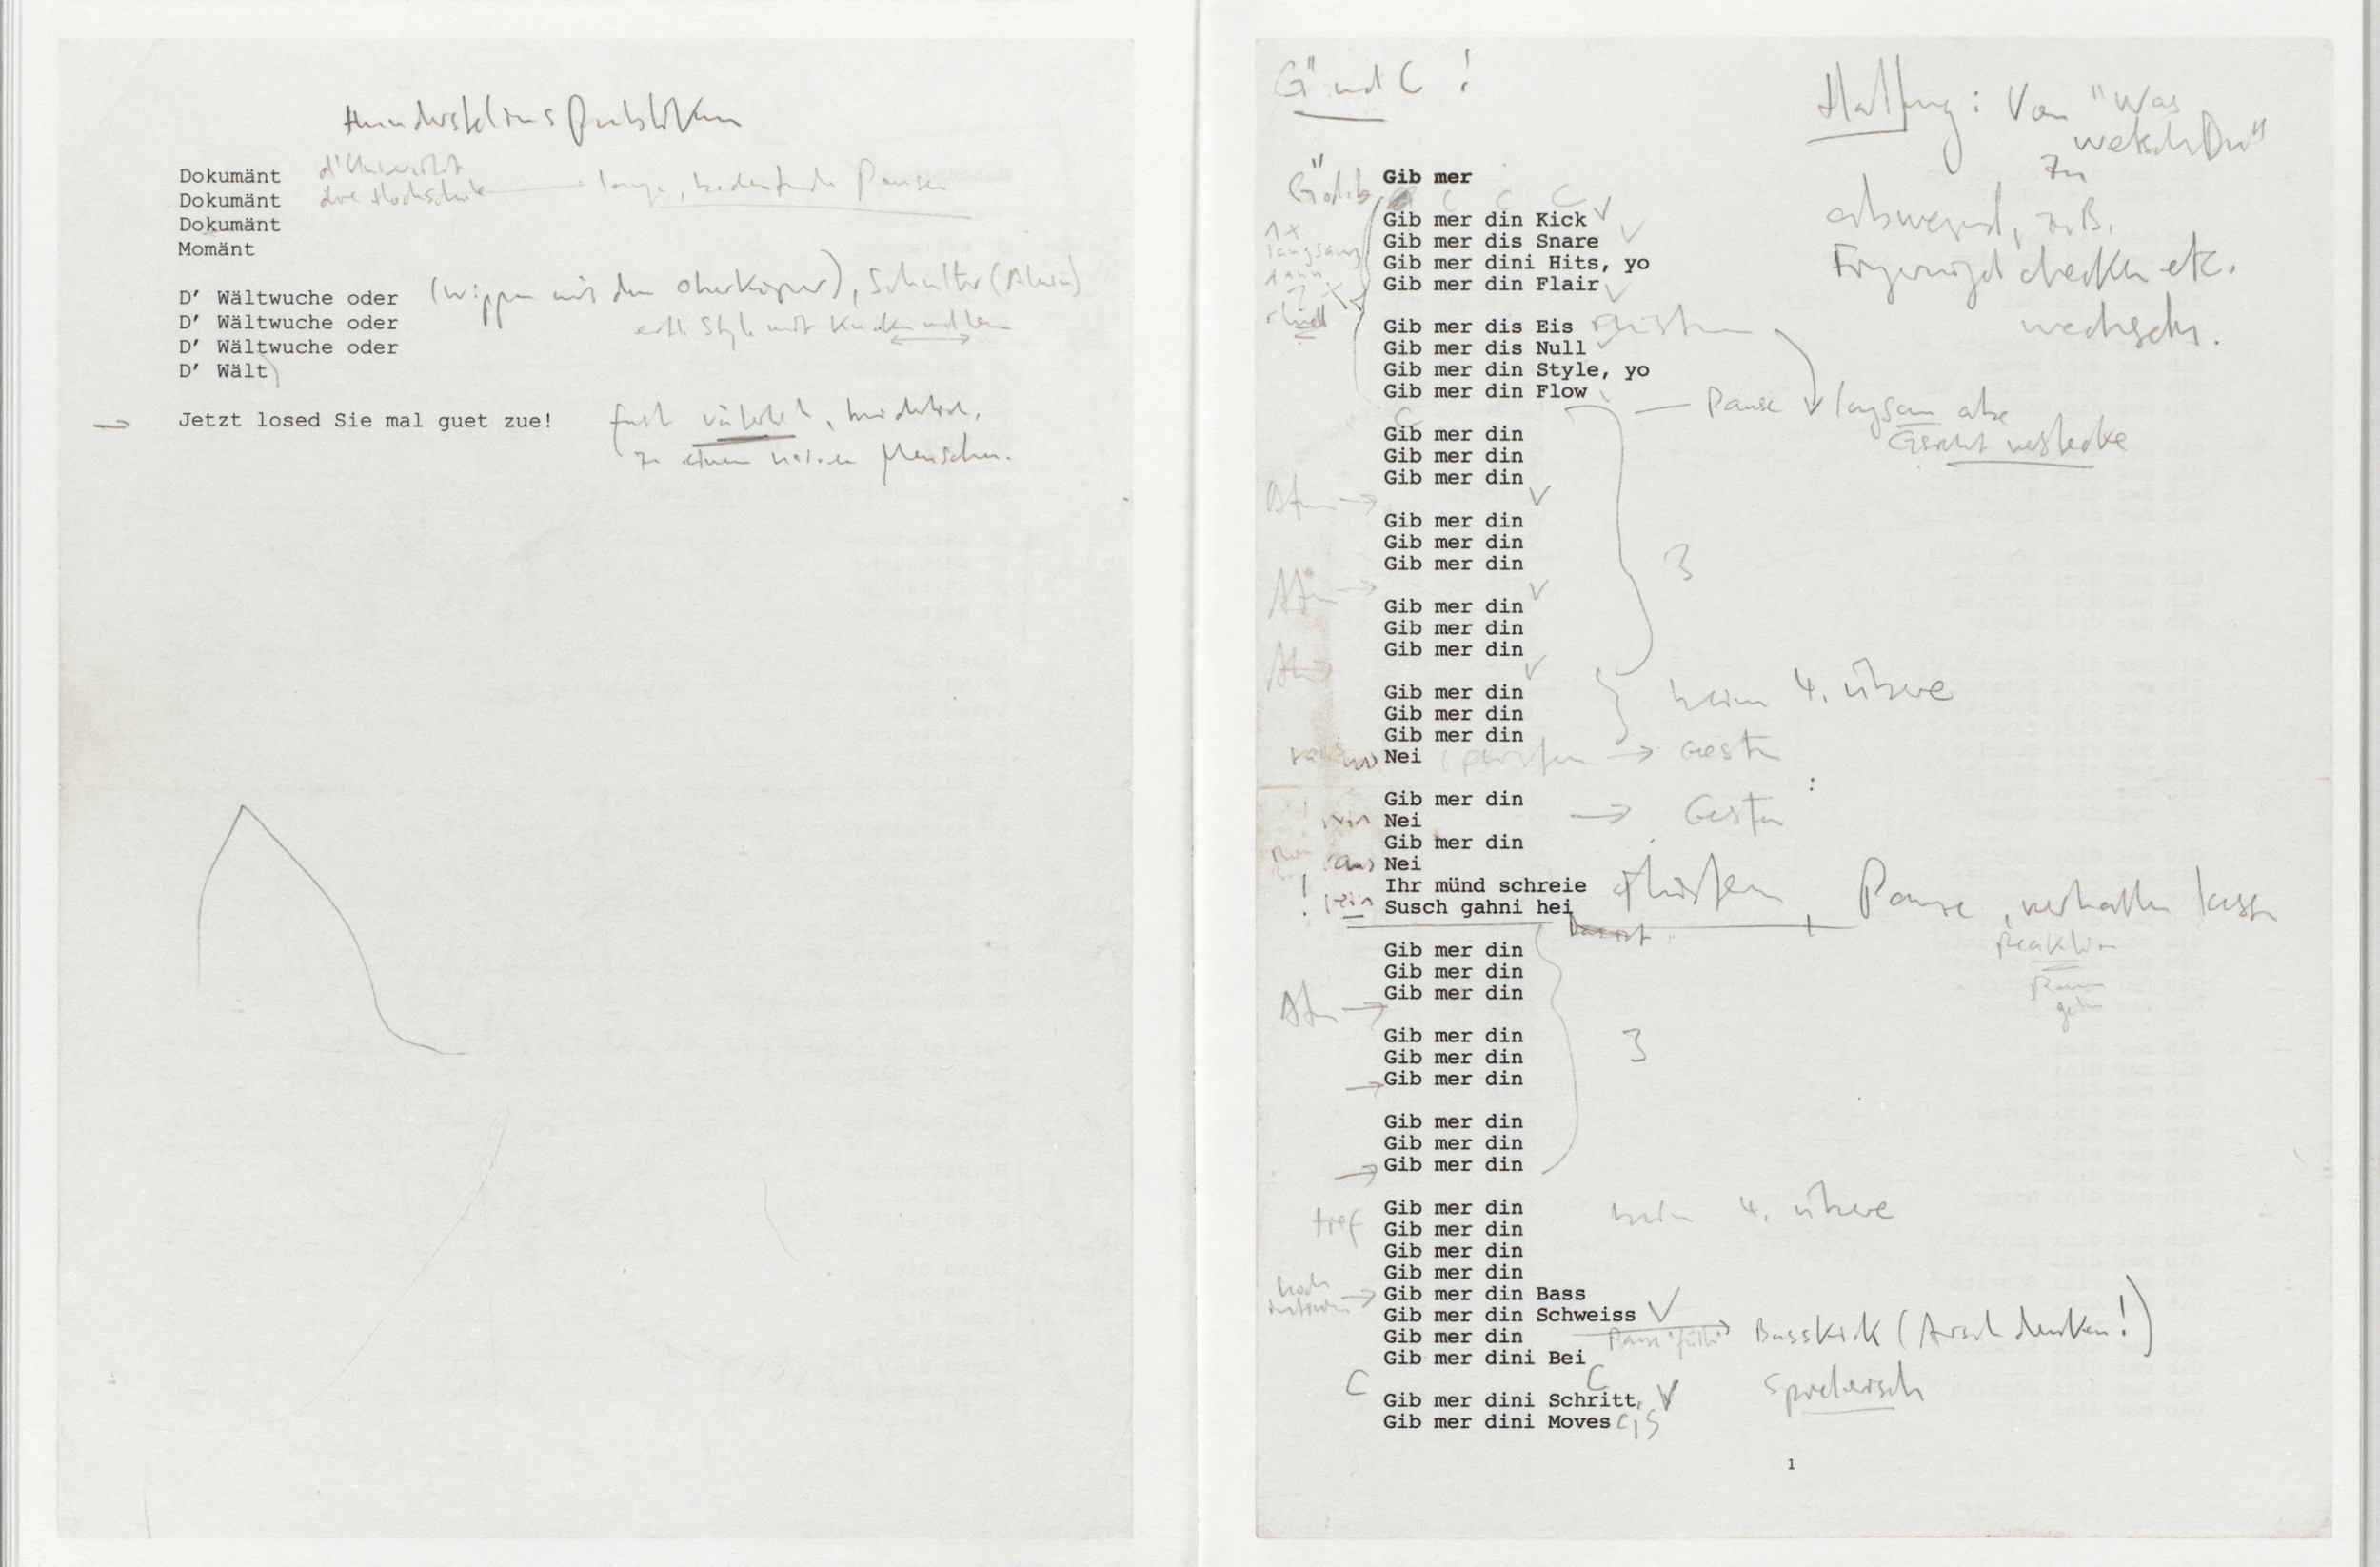 Dokumänt
Dokumänt
Dokumänt
Momänt
D' Wältwuche oder (wippen mit dem Oberkörper), Schulter
D' Wältwuche oder
D' Wältwuche oder
D' Wält
Jetzt losed Sie mal guet zue!
zu einem Menschen.
G" und C !
Haltung: Von "Was
wetsch Du"
zu
abwesend, z.B.
Fingernägel checken etc.
wechseln.
Gib mer
C C C
Gib mer din Kick
1x
langsam
dann
Gib mer dis Snare
Gib mer dini Hits, yo
Gib mer din Flair
Gib mer dis Eis
Gib mer dis Null
Gib mer din Style, yo
Gib mer din Flow
Pause langsam abe
Gesicht verstecke
C
Gib mer din
Gib mer din
Gib mer din
Atm
Gib mer din
Gib mer din
Gib mer din
3
Atm
Gib mer din
Gib mer din
Gib mer din
Gib mer din
beim 4. übere
Gib mer din
Gib mer din
Nei
Geste
Gib mer din
Geste
rein Nei
Gib mer din
aus Nei
Ihr münd schreie
Pause, verhallen lassen
! rein Susch gahni hei
Reaktion
Gib mer din
Gib mer din
Gib mer din
Atm
Gib mer din
3
Gib mer din
Gib mer din
Gib mer din
Gib mer din
Gib mer din
tief Gib mer din
beim 4. übere
Gib mer din
Gib mer din
Gib mer din
hoch
Gib mer din Bass
Gib mer din Schweiss
Gib mer din
Pause
Basskick (Arsch denken!)
Gib mer dini Bei
C
C
spielerisch
Gib mer dini Schritt,
Gib mer dini Moves
1